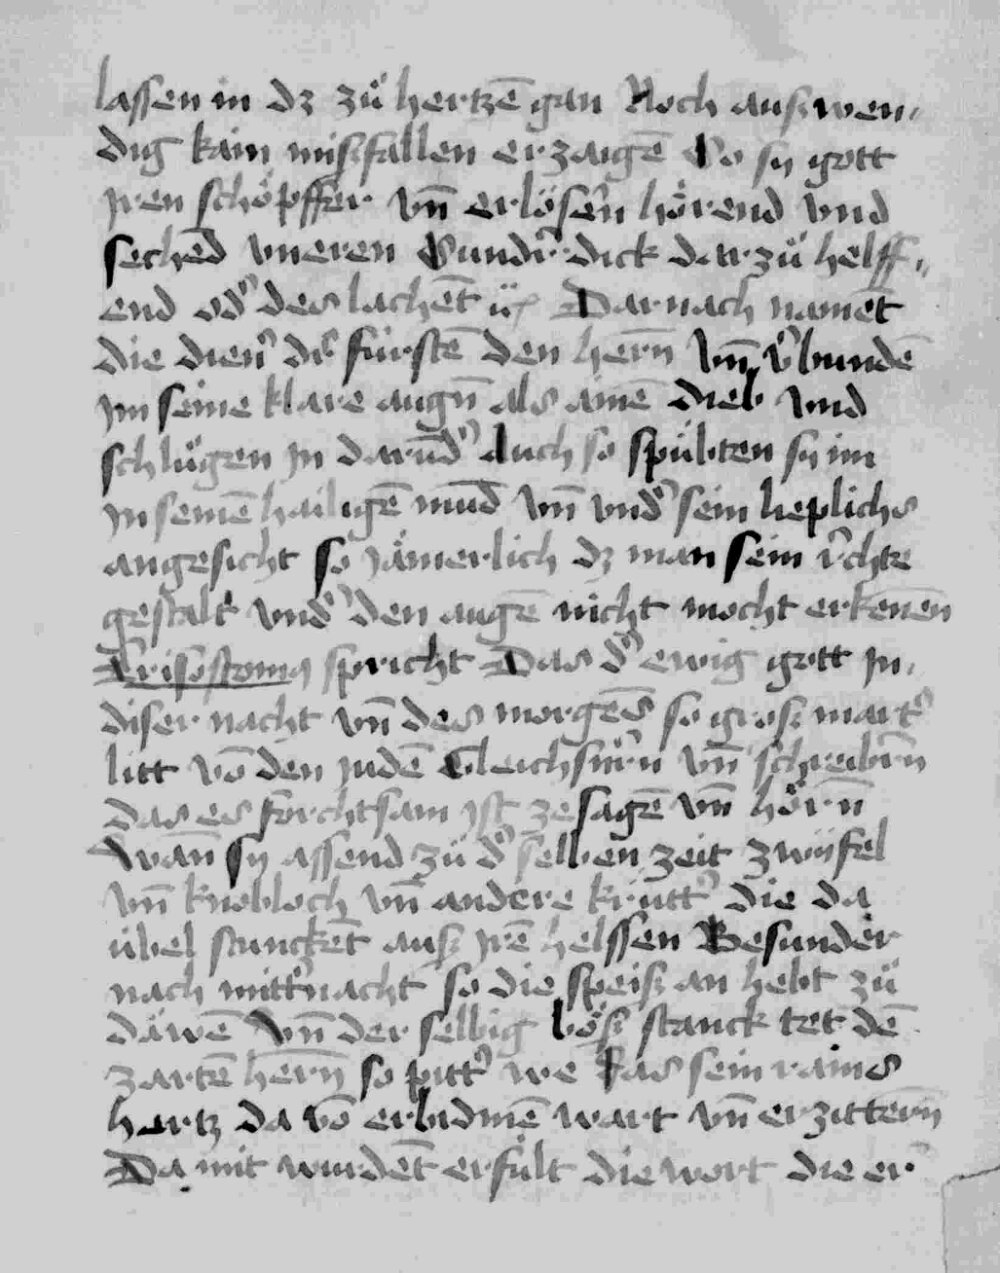 lassen in dz zů hertzē gan Noch ausz wen„
dig kain miszfallen erzaigē So sy gott
jren schöpffer vn̄ erlösern̄ hörend vnd
sechēd vneren Sunder dick dar zů helff„
end od̾ des lachēt
Dar nach namēt
die dien̾ d̾ fürstē den hern̄ vn̄ v̾bundē
im seine klare augn̄ als ainē dieb vnd
schlůgen jn darūd̾ Auch so spübten sy im
jn seinē hailigē mūd vn̄ vnd̾ sein lieplichs
angesicht so jämerlich dz man sein r̾chte
gestalt vnd̾ den augē nicht mocht erkenēn
Crisostomꝯ spricht Das d̾ ewig gott jn„
diser nacht vn̄ des morgēs so grosz mart̾
litt vō den judē Gleichsnr̄n vn̄ schreibrn̄
das es forchtsam jst ze sagē vn̄ hörn̄
Wan̄ sy assend zů d̾ selben zeit zwÿfel
vn̄ knobloch vn̄ andere krütt̾ die da
übel stunckēt ausz jrē helssen Besunder
nach mitt̾nacht so die speisz an hebt zů
däwē Vn̄ der selbig bösz stanck tet dē
zartē hern̄ so pitt̾ we das sein raines
hertz da vō erbidmē wart vn̄ erzittern̄
Da mit wurdēt erfült die wort die er